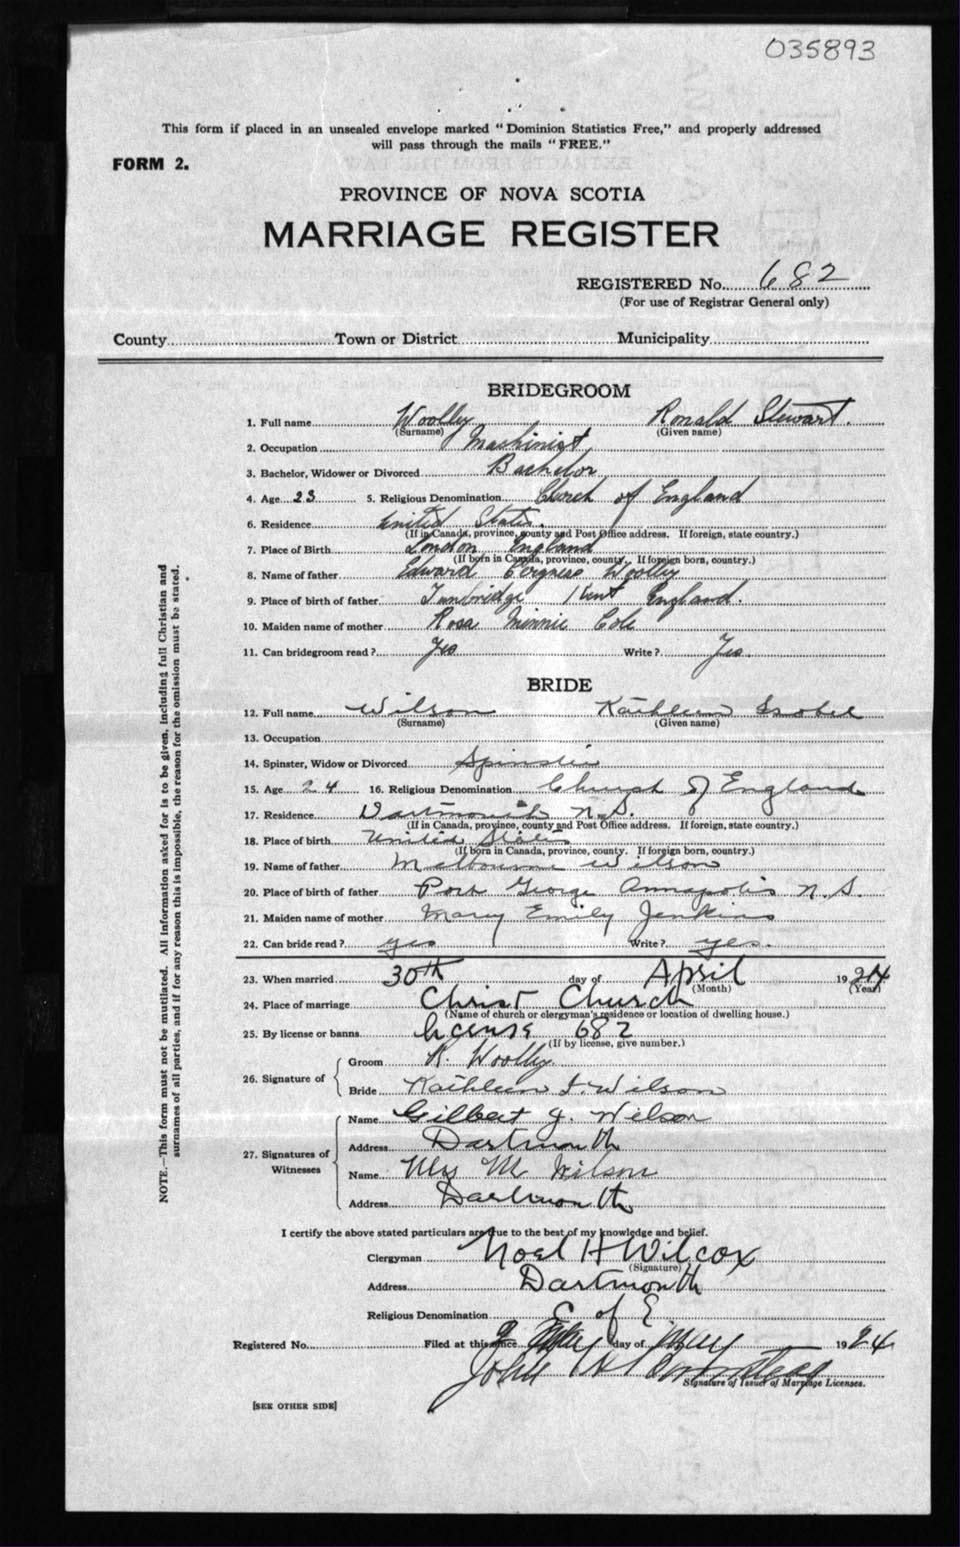 035893
This form if placed in an unsealed envelope marked "Dominion Statistics Free," and properly addressed
will pass through the mails "FREE."
FORM 2.
PROVINCE OF NOVA SCOTIA
MARRIAGE REGISTER
REGISTERED No. 682
(For use of Registrar General only)
County Town or District Municipality
BRIDEGROOM
1. Full name Woolley Ronald Stewart.
(Surname) (Given name)
2. Occupation Machinist
3. Bachelor, Widower or Divorced Bachelor
4. Age 23 5. Religious Denomination Church of England
6. Residence United States.
(If in Canada, province, county and Post Office address. If foreign, state country.)
7. Place of Birth London England
(If born in Canada, province, county. If foreign born, country.)
8. Name of father Edward Woolley
9. Place of birth of father Tunbridge Kent England.
10. Maiden name of mother Rosa Minnie Cole
11. Can bridegroom read? Yes Write? Yes.
BRIDE
12. Full name Wilson Kathleen Isobel
(Surname) (Given name)
13. Occupation
14. Spinster, Widow or Divorced Spinster
15. Age 24 16. Religious Denomination Church of England
17. Residence Dartmouth N.S.
(If in Canada, province, county and Post Office address. If foreign, state country.)
18. Place of birth United States
(If born in Canada, province, county. If foreign born, country.)
19. Name of father Melbourne Wilson
20. Place of birth of father Port George Annapolis N.S.
21. Maiden name of mother Mary Emily Jenkins
22. Can bride read? yes Write? yes.
23. When married 30th day of April 1924
(Month) (Year)
24. Place of marriage Christ Church
(Name of church or clergyman's residence or location of dwelling house.)
25. By license or banns license 682
(If by license, give number.)
26. Signature of
Groom R. Woolley
Bride Kathleen I. Wilson
27. Signatures of Witnesses
Name Gilbert J. Wilson
Address Dartmouth
Name Mrs M. Wilson
Address Dartmouth
I certify the above stated particulars are true to the best of my knowledge and belief.
Clergyman Noel H Wilcox
(Signature)
Address Dartmouth
Religious Denomination C of E
Registered No. Filed at this office day of May 1924
John H
Signature of Issuer of Marriage Licenses.
[SEE OTHER SIDE]
NOTE.—This form must not be mutilated. All information asked for is to be given, including full Christian and
surnames of all parties, and if for any reason this is impossible, the reason for the omission must be stated.